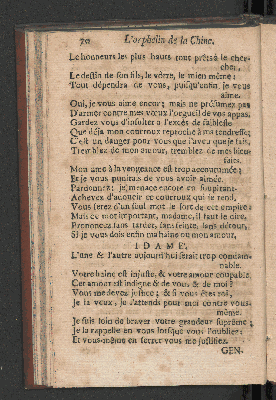 70 L'orphelin de la Chine,
Le honneurs les plus hauts tout prêts à le cher-
cher,
Le destin de son fils, le vôtre, le mien même:
Tout dépendra de vous, puisqu'enfin je vous
aime.
Oui, je vous aime encor; mais ne présumez pas
D'armer contre mes vœux l'orgueil de vos appas.
Gardez vous d'insulter à l'excès de faiblesse
Que déjà mon courroux reproche à ma tendresse;
C'est un danger pour vous que l'aveu que je fais,
Tremblez de mon amour, tremblez de mes bien-
faits.
Mon ame à la vengeance est trop accoutumée;
Et je vous punirais de vous avoir aimée.
Pardonnez: je menace encore en soupirant.
Achevez d'adoucir ce courroux qui se rend.
Vous ferez d'un seul mot le sort de cet empire:
Mais ce mot important, madame, il faut le dire.
Prononcez sans tarder, sans feinte, sans détour,
Si je vous dois enfin ma haine ou mon amour.
IDAMÉ.
L'une & l'autre aujourd'hui serait trop condam-
nable.
Votre haine est injuste, & votre amour coupable.
Cet amour est indigne & de vous & de moi:
Vous me devez justice; & si vous êtes roi,
Je la veux, je l'attends pour moi contre vous-
même.
Je suis loin de braver votre grandeur suprême;
Je la rappelle en vous lorsque vous l'oubliez:
Et vous-même en secret vous me justifiez.
GEN.